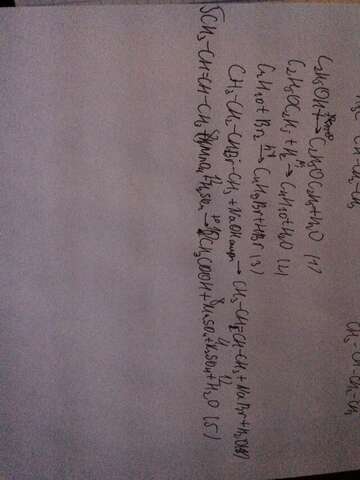 CH₃-CH-CH₂-CH₃
C₂H₅OH → C₂H₅OC₂H₅+H₂O (1)
C₂H₅OC₂H₅+H₂ → C₄H₁₀+H₂O (2)
C₄H₁₀+Br₂ hν→ C₄H₉Br+HBr (3)
CH₃-CH₂-CHBr-CH₃+NaOH → CH₃-CH=CH-CH₃+NaBr+H₂O (4)
5CH₃-CH=CH-CH₃+8KMnO₄+12H₂SO₄ t°→ 10CH₃COOH+8MnSO₄+4K₂SO₄+12H₂O (5)